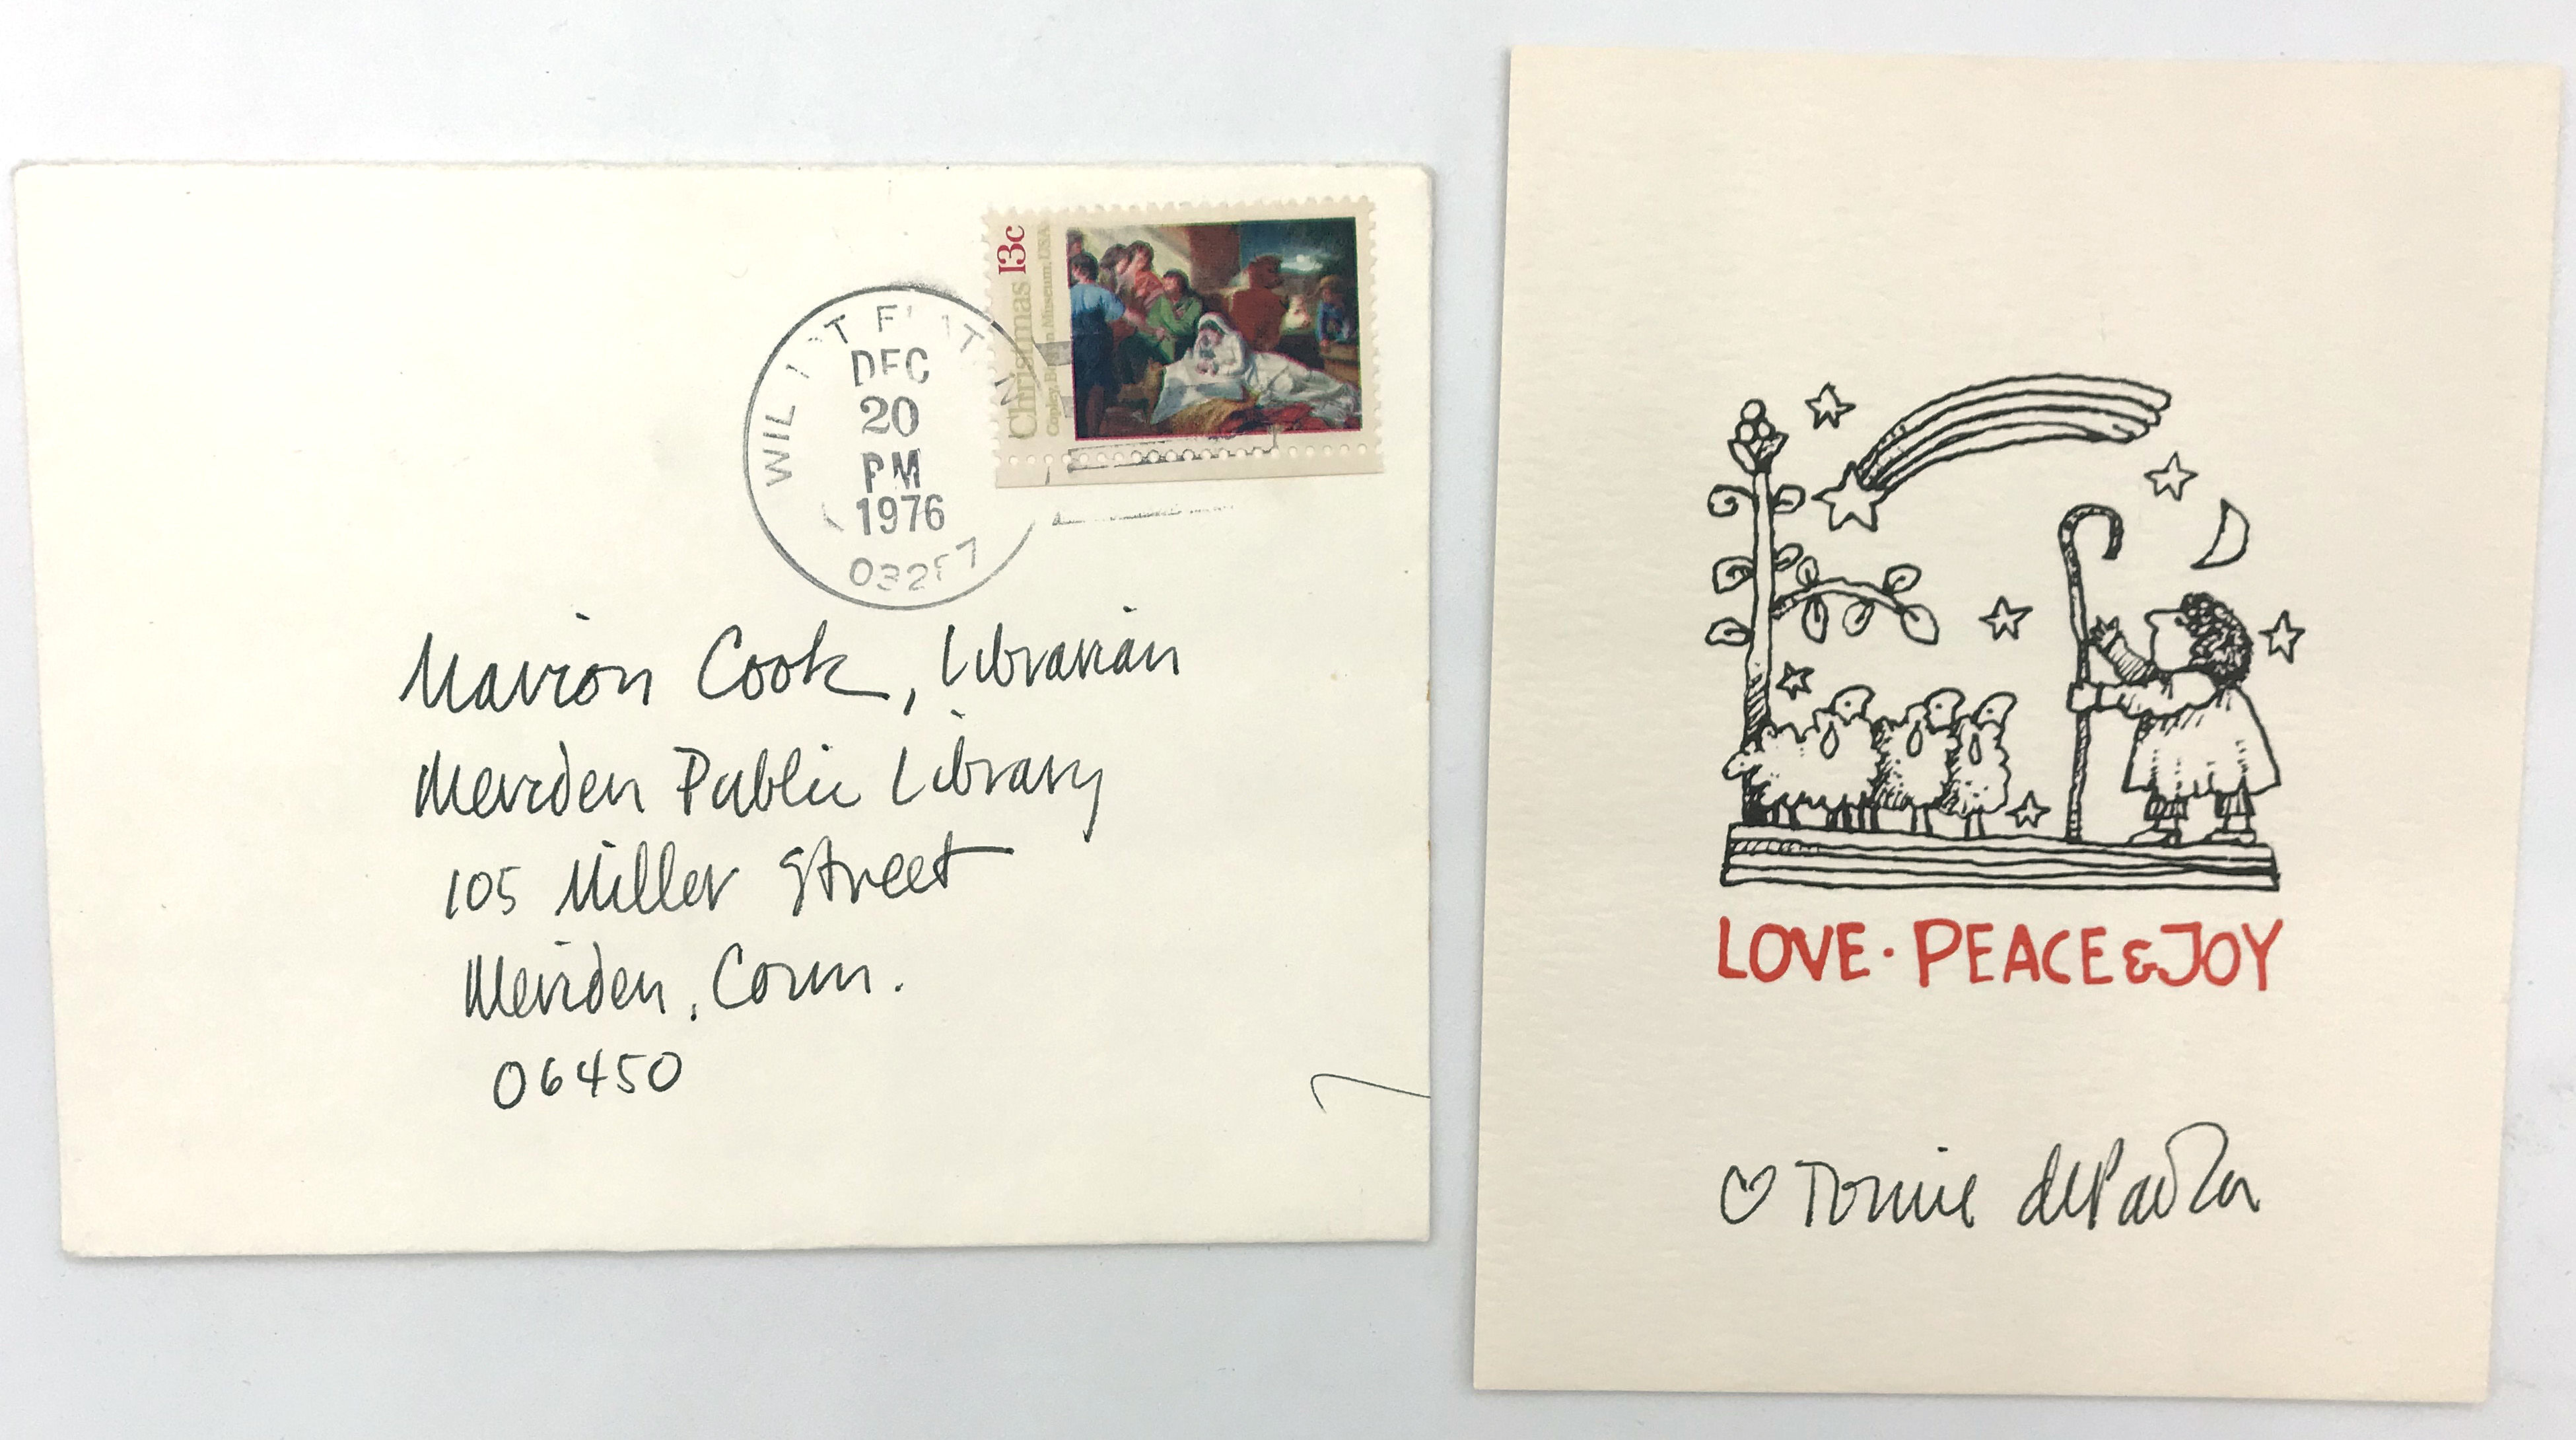 Christmas 13c
Copley, Museum, USA
DEC
20
PM
1976
Marion Cook, Librarian
Meriden Public Library
105 Miller Street
Meriden, Conn.
06450
LOVE · PEACE & JOY
♡ Tomie dePaola